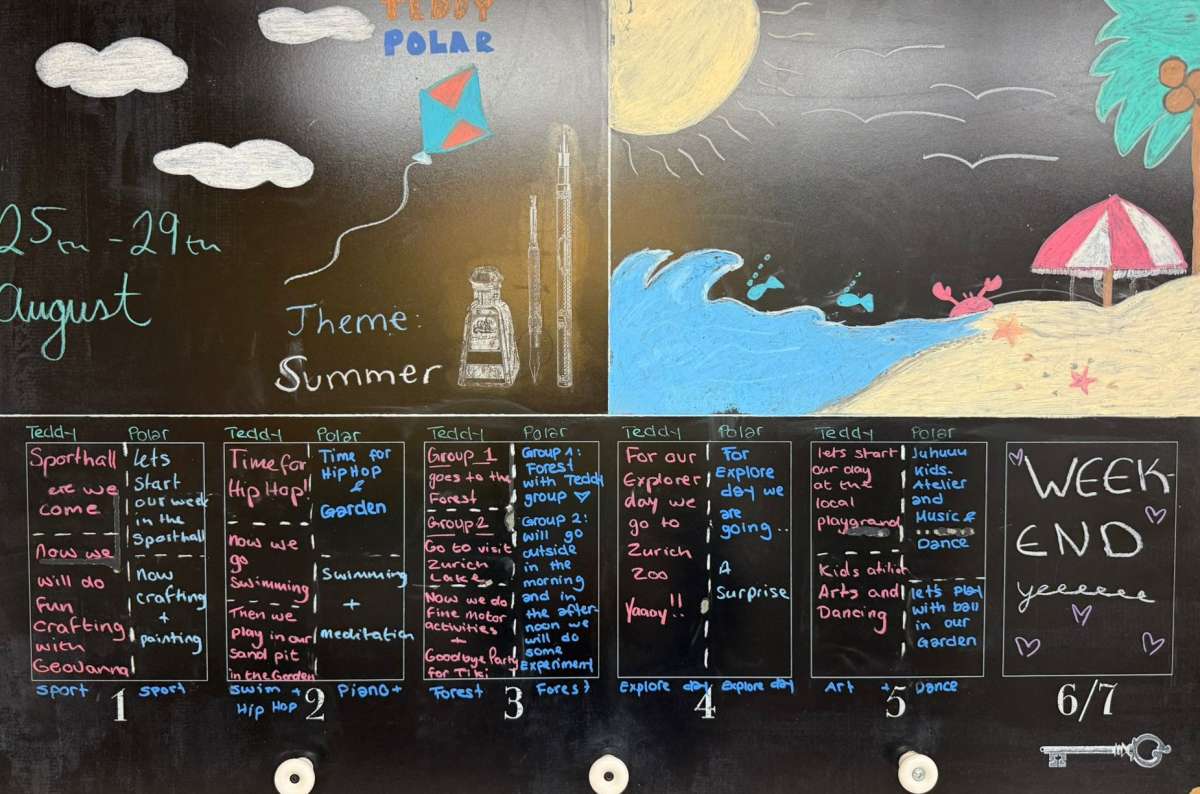 TEDDY
POLAR
25th - 29th
August
Theme:
Summer
Teddy
Sporthall
are we
come
Now we
will do
fun
crafting
with
Geovanna
Polar
Lets
start
our week
in the
Sporthall
Now
crafting
+
painting
Sport
Sport
1
Teddy
Time for
Hip Hop!!
now we
go
swimming
Then we
play in our
sand pit
in the Garden
Polar
Time for
HipHop
&
Garden
Swimming
+
meditation
Swim +
Hip Hop
Piano+
2
Teddy
Group 1
goes to the
Forest
Group2
Go to visit
Zurich
Lake
Now we do
fine motor
activities
+
Goodbye Party
for Tiki
Polar
Group 1:
Forest
with Teddy
group
Group 2:
will go
outside
in the
morning
and in
the after-
noon we
will do
some
Experiment
Forest
Forest
3
Teddy
For our
Explorer
day we
go to
Zurich
Zoo
Yaaay!!
Polar
For
Explore
day we
are
going..
A
Surprise
Explore day
Explore day
4
Teddy
lets start
our day
at the
local
playground
Kids
Arts and
Dancing
Polar
Juhuuu
Kids-
Atelier
and
Music &
Dance
let's play
with ball
in our
Garden
Art +
Dance
5
WEEK-
END
yeeeeee
6/7